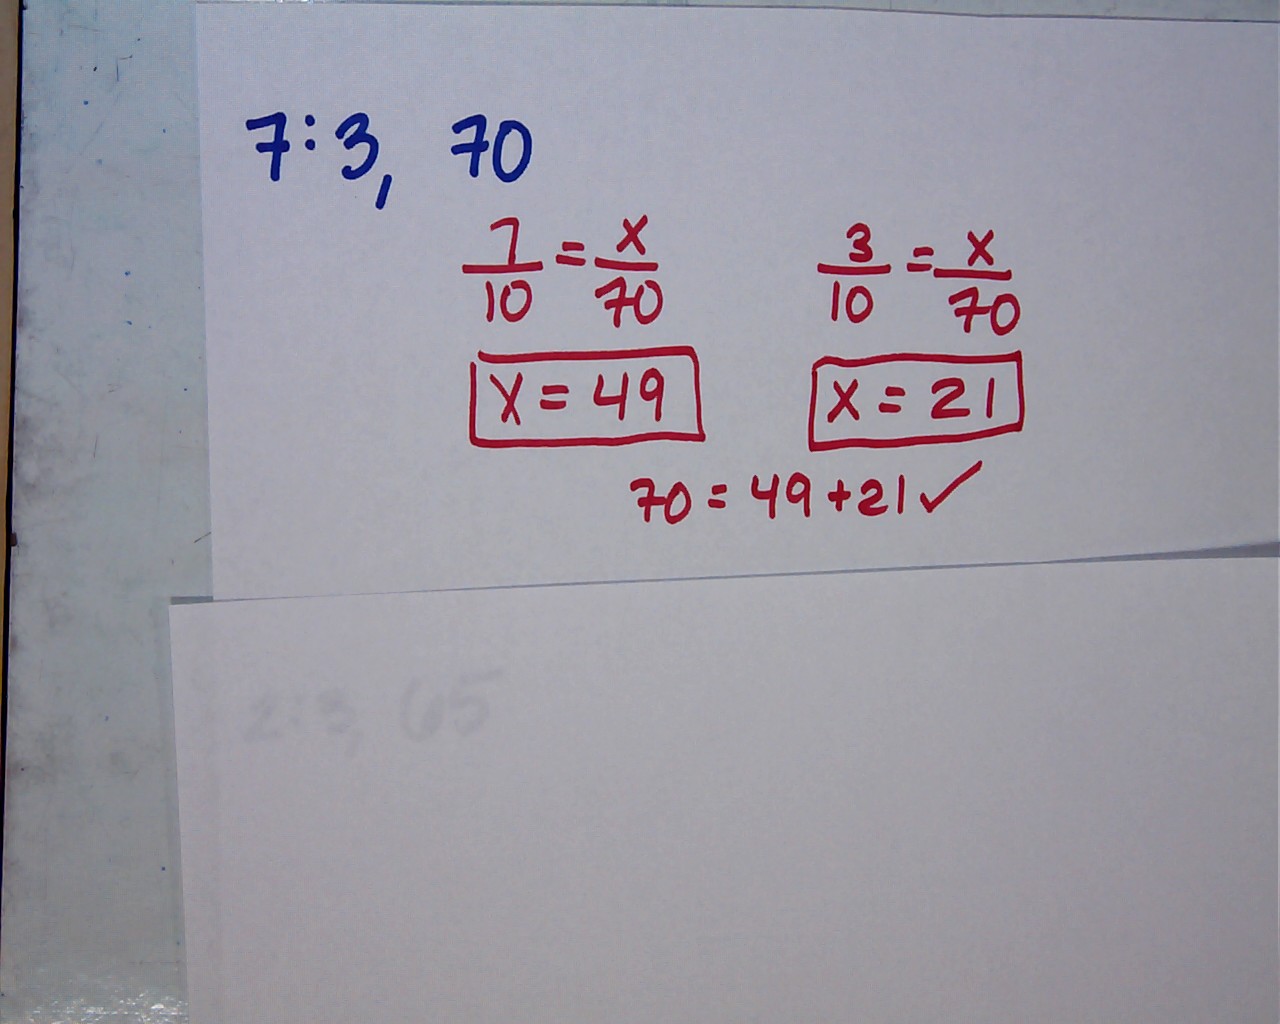 7:3, 70
7/10 = x/70    3/10 = x/70
x = 49    x = 21
70 = 49 + 21 ✓
2:3, 65